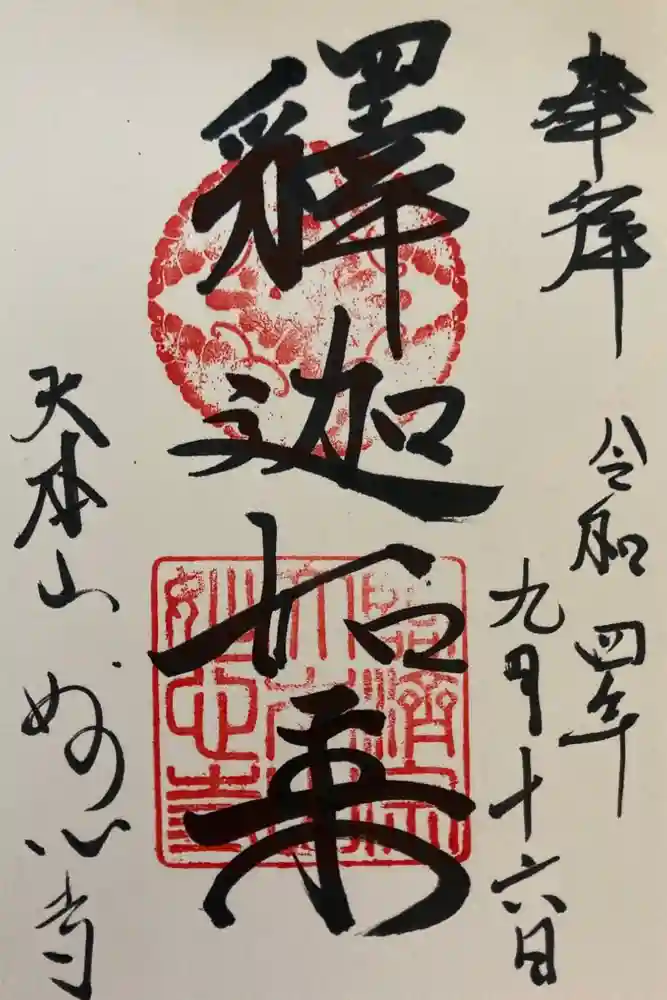 奉拝
令和四年
九月十六日
釋迦如来
大本山 妙心寺
臨濟宗
大本山
妙心寺